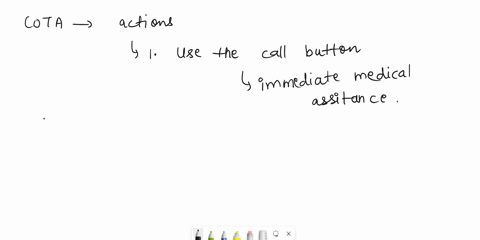 COTA → actions
↳ 1. Use the call button
↳ immediate medical
assitance.